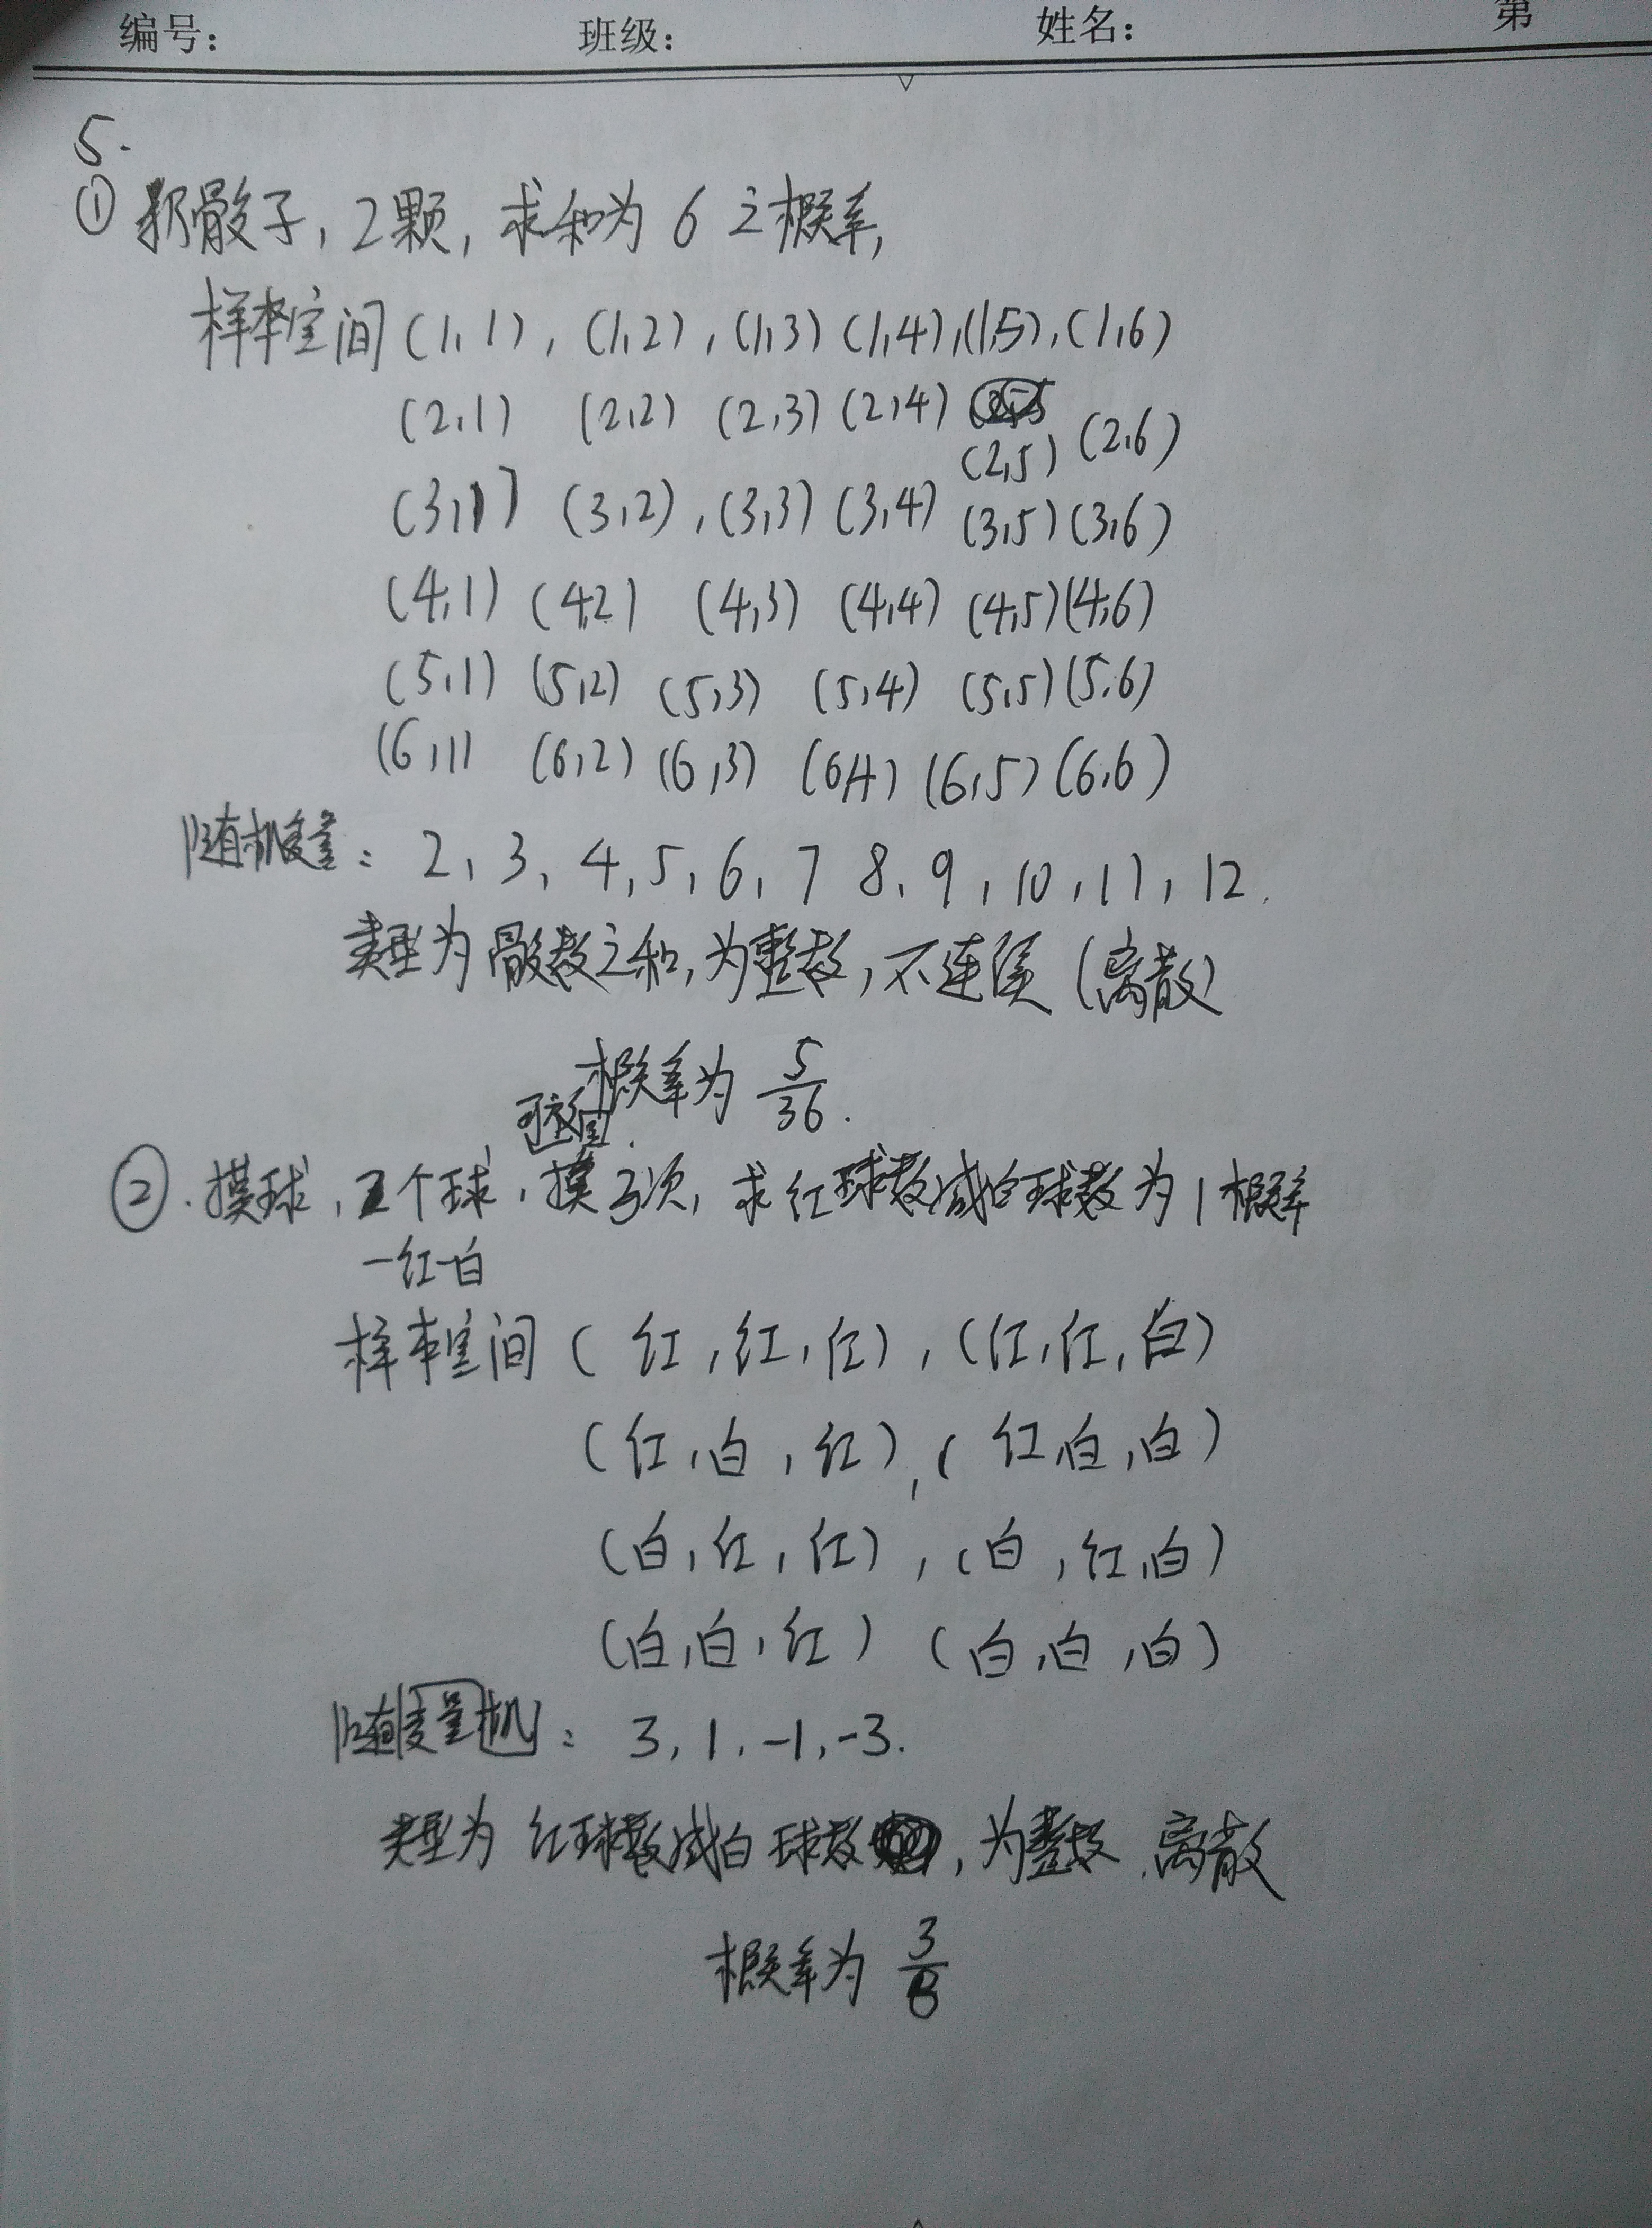 编号： 班级： 姓名： 第
5.
① 掷骰子, 2颗, 求和为 6 之概率,
样本空间 (1,1), (1,2), (1,3) (1,4), (1,5), (1,6)
(2,1) (2,2) (2,3) (2,4) (2,5) (2,6)
(3,1) (3,2), (3,3) (3,4) (3,5) (3,6)
(4,1) (4,2) (4,3) (4,4) (4,5) (4,6)
(5,1) (5,2) (5,3) (5,4) (5,5) (5,6)
(6,1) (6,2) (6,3) (6,4) (6,5) (6,6)
随机变量: 2, 3, 4, 5, 6, 7 8, 9, 10, 11, 12.
类型为骰数之和, 为整数, 不连续 (离散)
概率为 5/36.
可放回.
②. 摸球, 2个球, 摸3次, 求红球数减白球数为1概率
一红一白
样本空间 (红, 红, 红), (红, 红, 白)
(红, 白, 红), (红, 白, 白)
(白, 红, 红), (白, 红, 白)
(白, 白, 红) (白, 白, 白)
随变量机: 3, 1, -1, -3.
类型为 红球数减白球数, 为整数, 离散
概率为 3/8